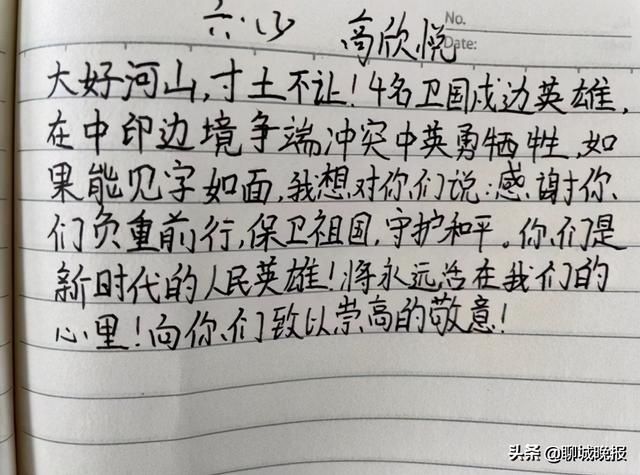 六.(3) 高欣悦
No.
Date:
大好河山,寸土不让!4名卫国戍边英雄,
在中印边境争端冲突中英勇牺牲,如
果能见字如面,我想对你们说:感谢你
们负重前行,保卫祖国,守护和平。你们是
新时代的人民英雄!将永远活在我们的
心里!向你们致以崇高的敬意!
头条 @聊城晚报